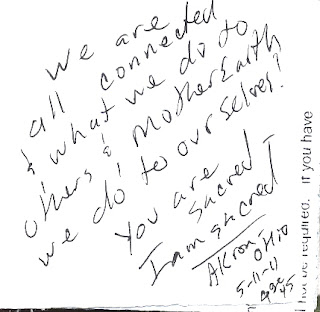 we are
all connected
& what we do to
others & Mother Earth
we do to ourselves!
You are
sacred
I am sacred
AKron-
OHio
5-11-11
age 45
not be required. If you have